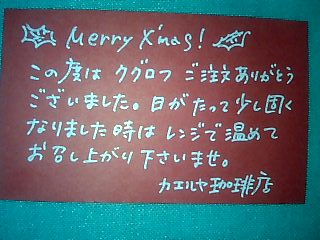 Merry X'mas!
この度は クグロフ ご注文ありがとう
ございました。日がたって少し固く
なりました時は レンジで温めて
お召し上がり下さいませ。
カエルヤ珈琲店